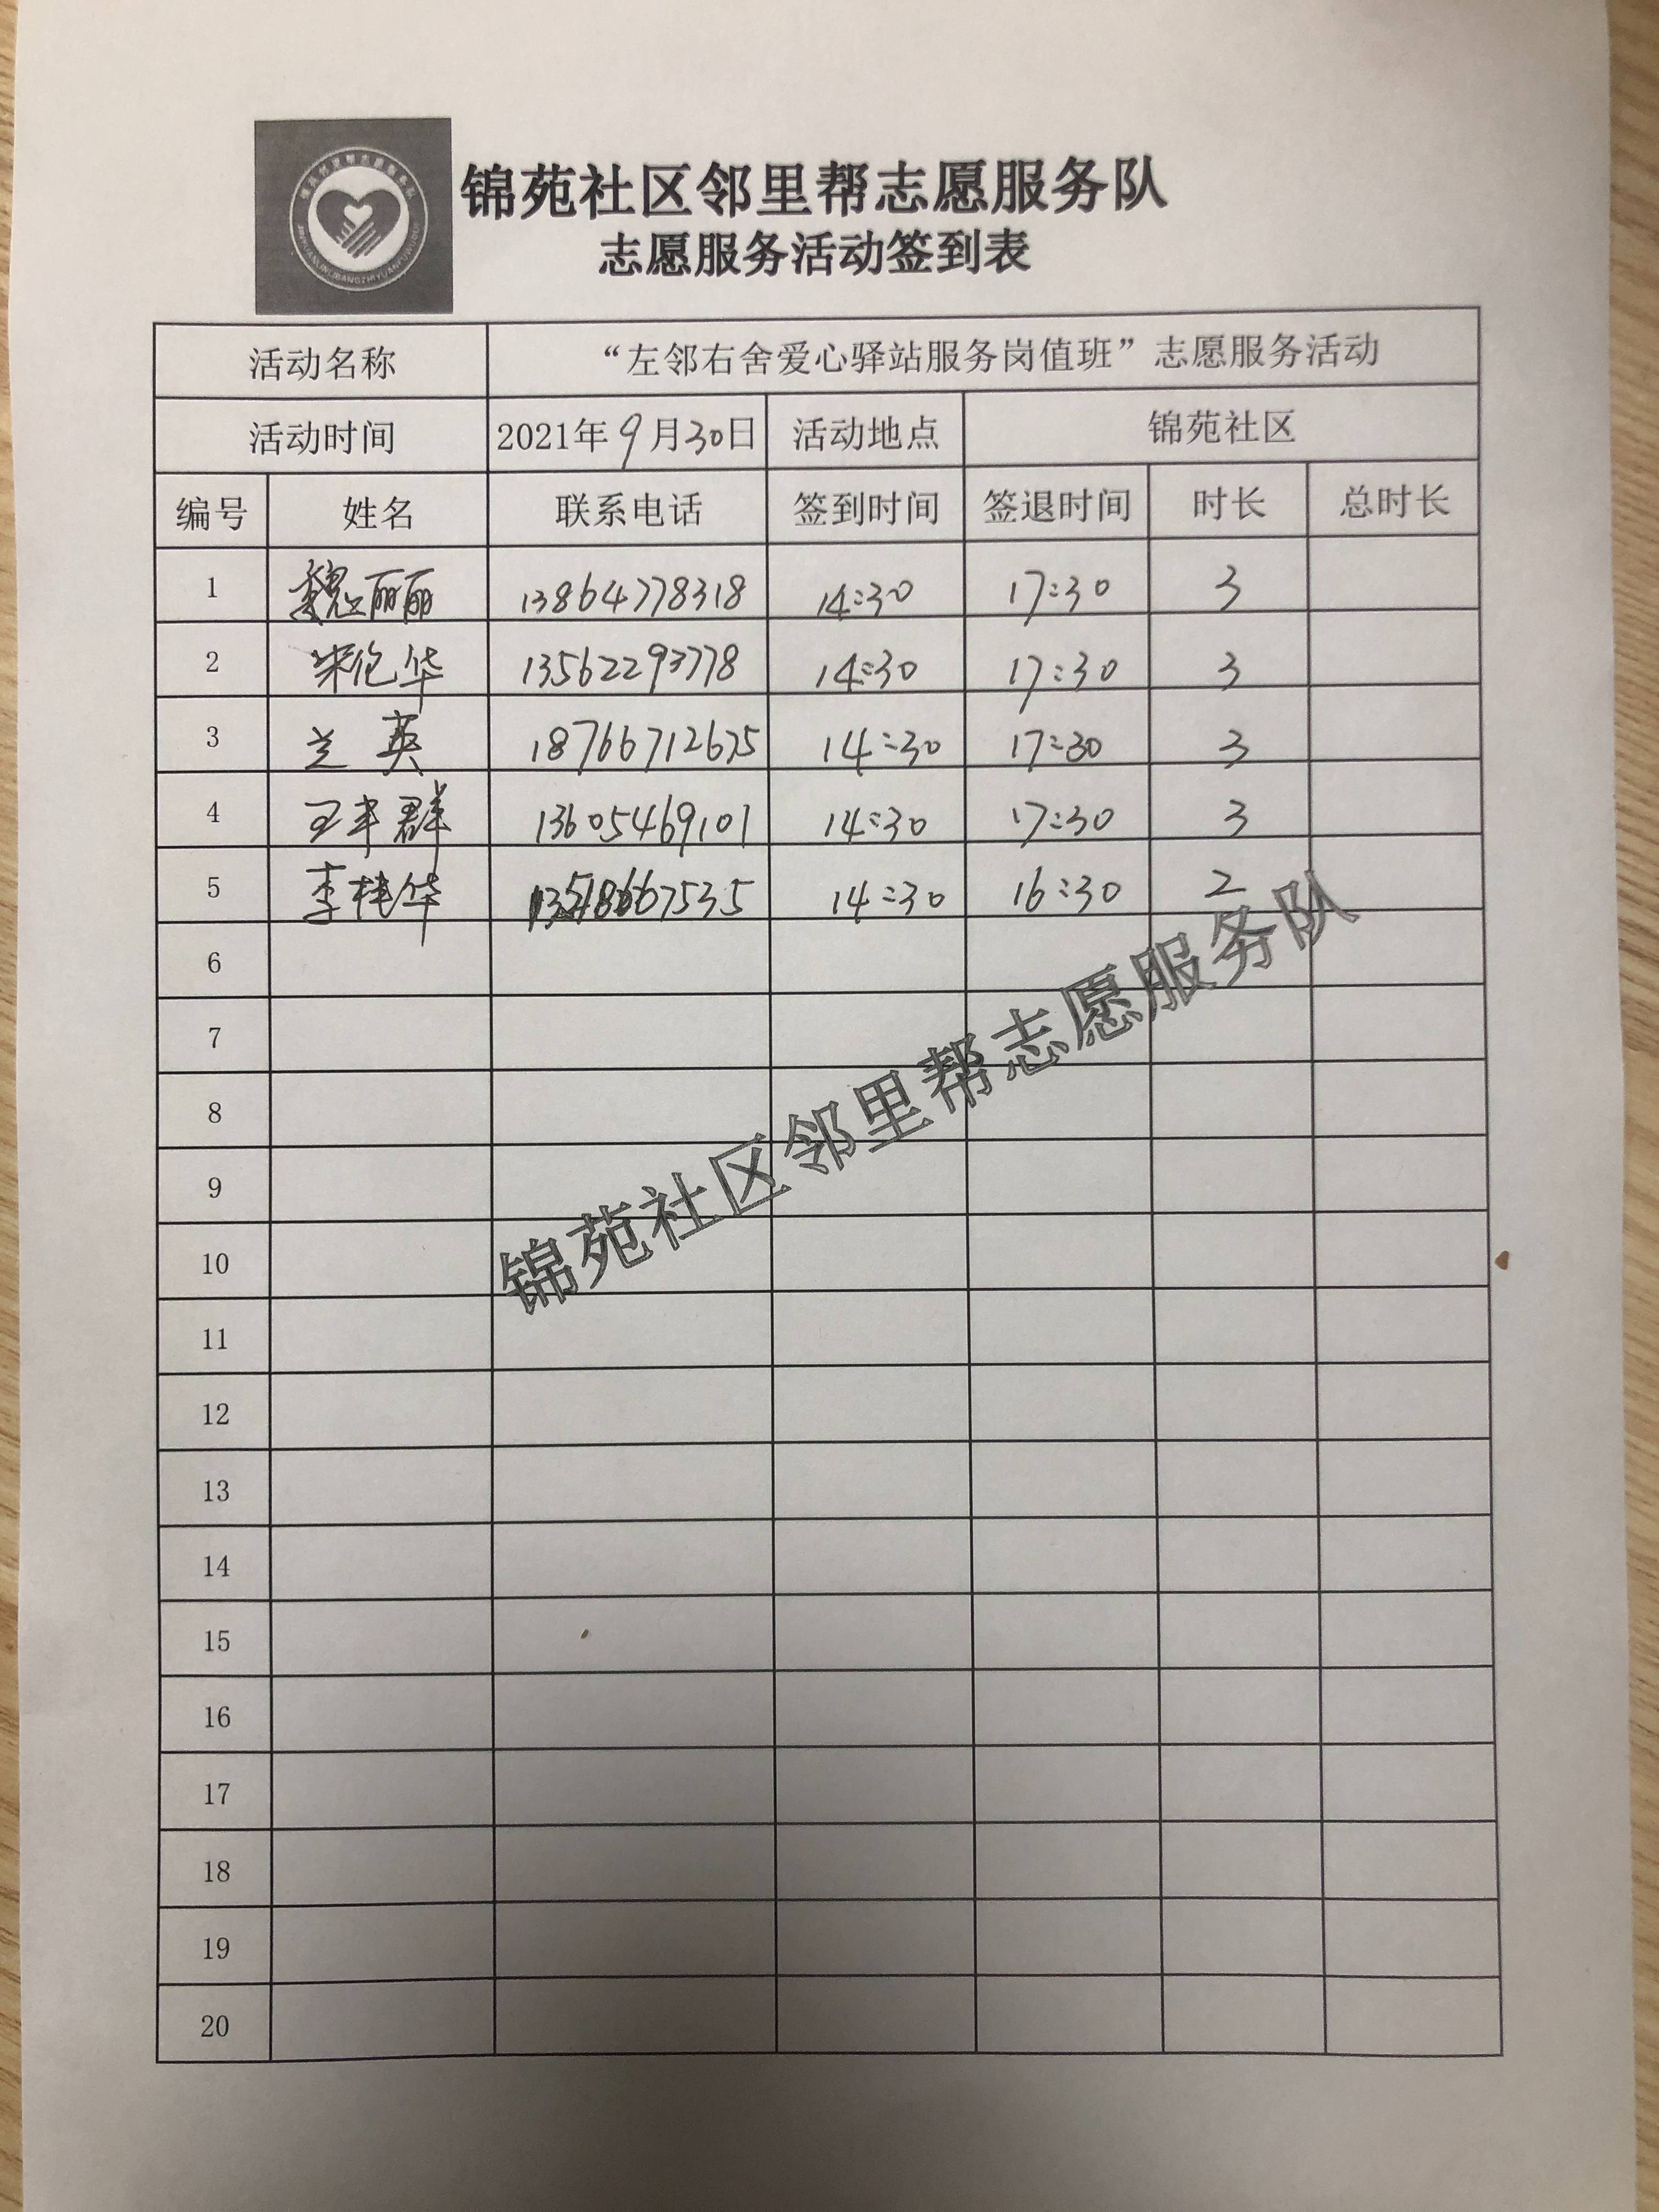 锦苑社区邻里帮志愿服务队
志愿服务活动签到表
活动名称 “左邻右舍爱心驿站服务岗值班”志愿服务活动
活动时间 2021年9月30日 活动地点 锦苑社区
编号 姓名 联系电话 签到时间 签退时间 时长 总时长
1 魏丽丽 13864778318 14:30 17:30 3
2 宋伦华 13562293778 14:30 17:30 3
3 兰英 18766712675 14:30 17:30 3
4 王丰群 13605469101 14:30 17:30 3
5 李桂华 14:30 16:30 2
6
7
8
9
10
11
12
13
14
15
16
17
18
19
20
锦苑社区邻里帮志愿服务队